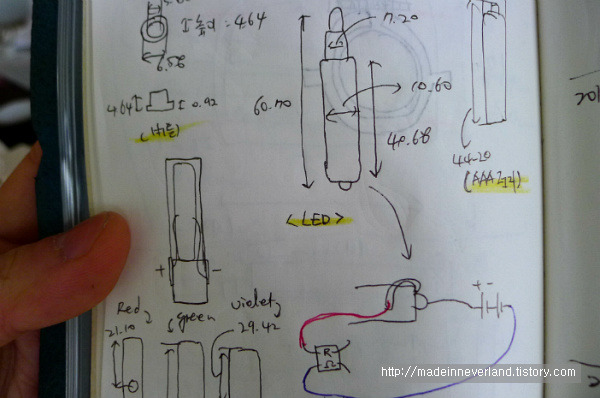 : 4.64
6.56
4.64
0.92
(버튼)
60.70
7.20
10.60
40.68
<LED>
44.20
(AAA건전지)
201
+
-
Red
21.10
green
violet
29.42
+ -
R
Ω
2
http://madeinneverland.tistory.com